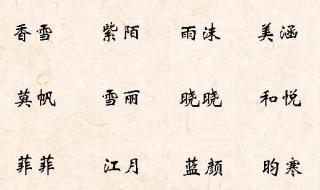 香雪 紫陌 雨沫 美涵
莫帆 雪丽 晓晓 和悦
菲菲 江月 蓝颜 昀寒